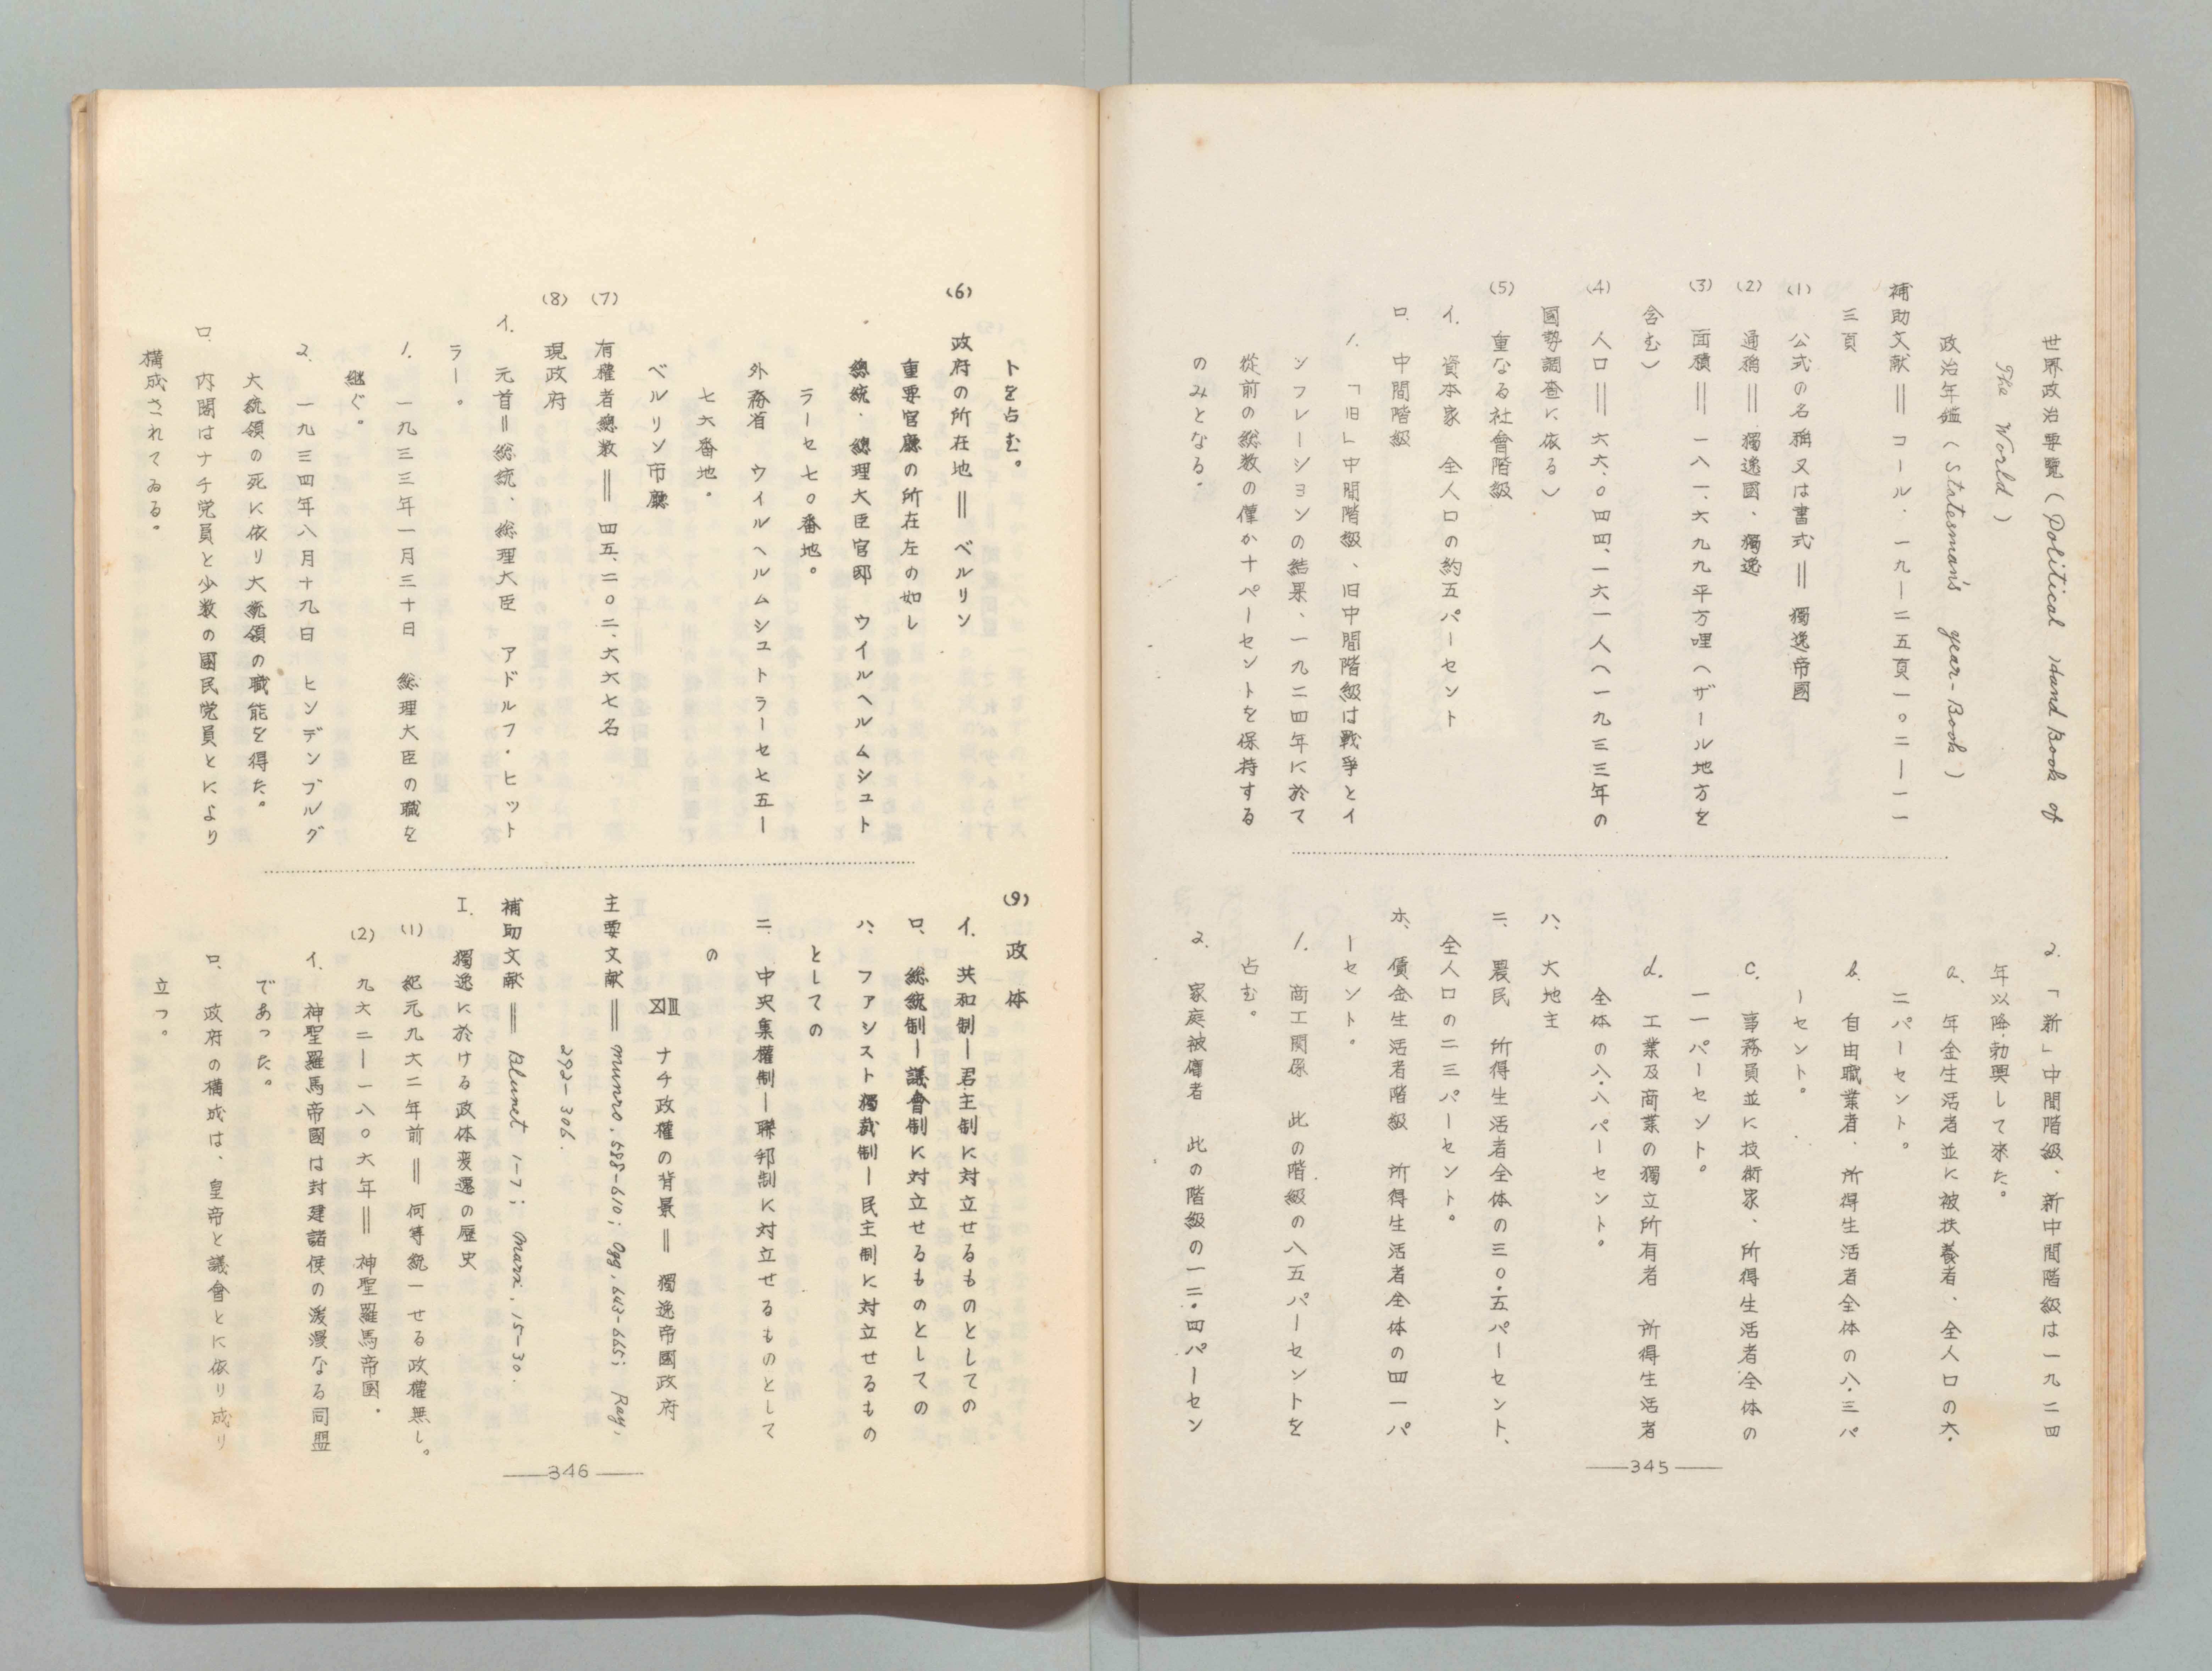 世界政治要覧（Political Hand Book of
The World）
政治年鑑（Statesman's year-Book）
補助文献＝コール．一九—二五頁一〇二—一一
三頁
(1) 公式の名稱又は書式＝獨逸帝國
(2) 通稱＝獨逸國、獨逸
(3) 面積＝一八一、六九九平方哩（ザール地方を
含む）
(4) 人口＝六六、〇四四、一六一人（一九三三年の
國勢調査に依る）
(5) 重なる社會階級
イ. 資本家　全人口の約五パーセント
ロ. 中間階級
1. 「旧」中間階級、旧中間階級は戰爭とイ
ンフレーションの結果、一九二四年に於て
從前の総数の僅か十パーセントを保持する
のみとなる。
2. 「新」中間階級、新中間階級は一九二四
年以降勃興して來た。
a. 年金生活者並に被扶養者、全人口の六.
二パーセント。
b. 自由職業者．所得生活者全体の八.三パ
ーセント。
c. 事務員並に技術家、所得生活者全体の
一一パーセント。
d. 工業及商業の獨立所有者　所得生活者
全体の八.八パーセント。
ハ. 大地主
ニ. 農民　所得生活者全体の三〇.五パーセント、
全人口の二三パーセント。
ホ. 債金生活者階級　所得生活者全体の四一パ
ーセント。
1. 商工関係　此の階級の八五パーセントを
占む。
2. 家庭被傭者　此の階級の一二.四パーセン
—345—
トを占む。
(6) 政府の所在地＝ベルリン
重要官廳の所在左の如し
總統．總理大臣官邸　ウイルヘルムシュト
ラーセ七〇番地。
外務省　ウイルヘルムシュトラーセ七五—
七六番地。
ベルリン市廳
(7) 有權者總数＝四五、二〇二、六六七名
(8) 現政府
イ. 元首＝総統、総理大臣　アドルフ・ヒット
ラー。
1. 一九三三年一月三十日　総理大臣の職を
継ぐ。
2. 一九三四年八月十九日　ヒンデンブルグ
大統領の死に依り大統領の職能を得た。
ロ. 内閣はナチ党員と少数の國民党員とにより
構成されてゐる。
(9) 政体
イ. 共和制—君主制に対立せるものとしての
ロ. 総統制—議會制に対立せるものとしての
ハ. ファシスト獨裁制—民主制に対立せるもの
としての
ニ. 中央集權制—聯邦制に対立せるものとして
の
XIII ナチ政權の背景＝獨逸帝國政府
主要文献＝Munro, 588-610; Ogg, 643-665; Ray,
292-306.
補助文献＝Blunet 1-7; Marx, 15-30.
I. 獨逸に於ける政体変遷の歴史
(1) 紀元九六二年前＝何等統一せる政權無し。
(2) 九六二—一八〇六年＝神聖羅馬帝國．
イ. 神聖羅馬帝國は封建諸侯の漫なる同盟
であった。
ロ. 政府の構成は、皇帝と議會とに依り成り
立つ。
—346—